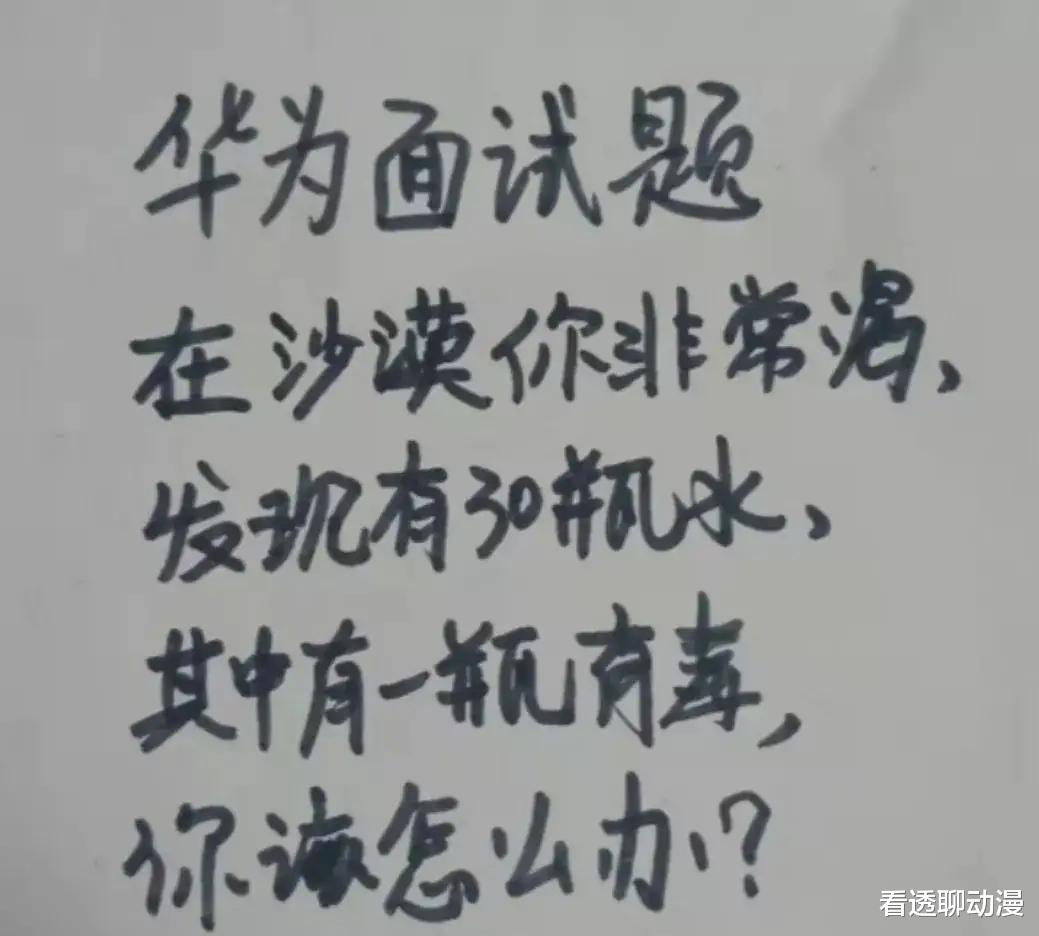 华为面试题
在沙漠你非常渴、
发现有30瓶水、
其中有一瓶有毒,
你该怎么办?
看透聊动漫